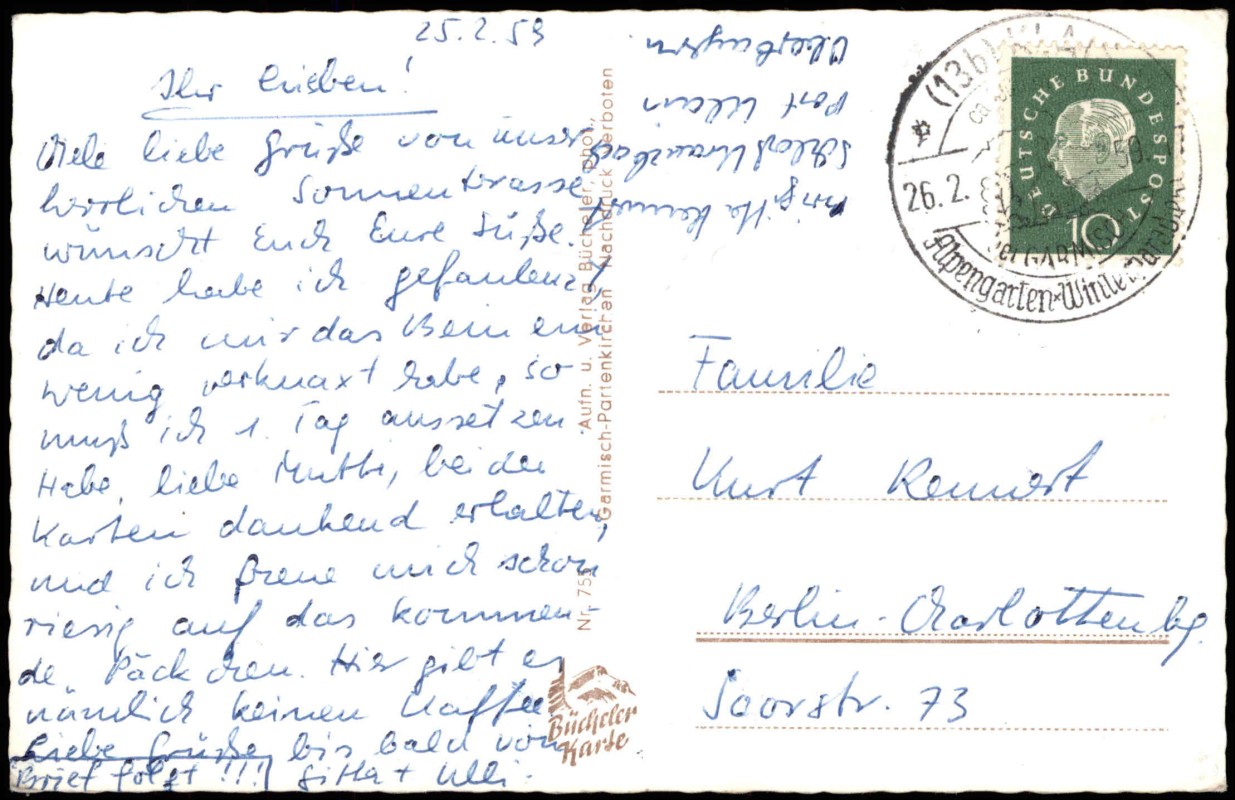 25.2.59
Ihr Lieben!
Viele liebe Grüße von unser
herrlichen Sonnenterasse
wünscht Euch Eure Süße.
Heute habe ich gefaulenzt,
da ich mir das Bein ein
wenig verknaxt habe, so
muß ich 1 Tag aussetzen
Habe, liebe Mutti, beide
Karten dankend erhalten,
und ich freue mich schon
riesig auf das kommen-
de Päckchen. Hier gibt es
nämlich keinen Kaffee
Liebe Grüße bis bald von
Brief folgt!!! Gitta + Ulli.
Brigitta Kennert
Schloß Kranzbach
Post Klais
Oberbayern
Nr. 755 Aufn. u. Verlag Bücheler, Phot.,
Garmisch-Partenkirchen Nachdruck verboten
Bücheler
Karte
(13b) KLAIS
26.2.
GARMISCH
Alpengarten-Winter
DEUTSCHE BUNDESPOST
10
Familie
Kurt Kennert
Berlin-Charlottenbg.
Soorstr. 73